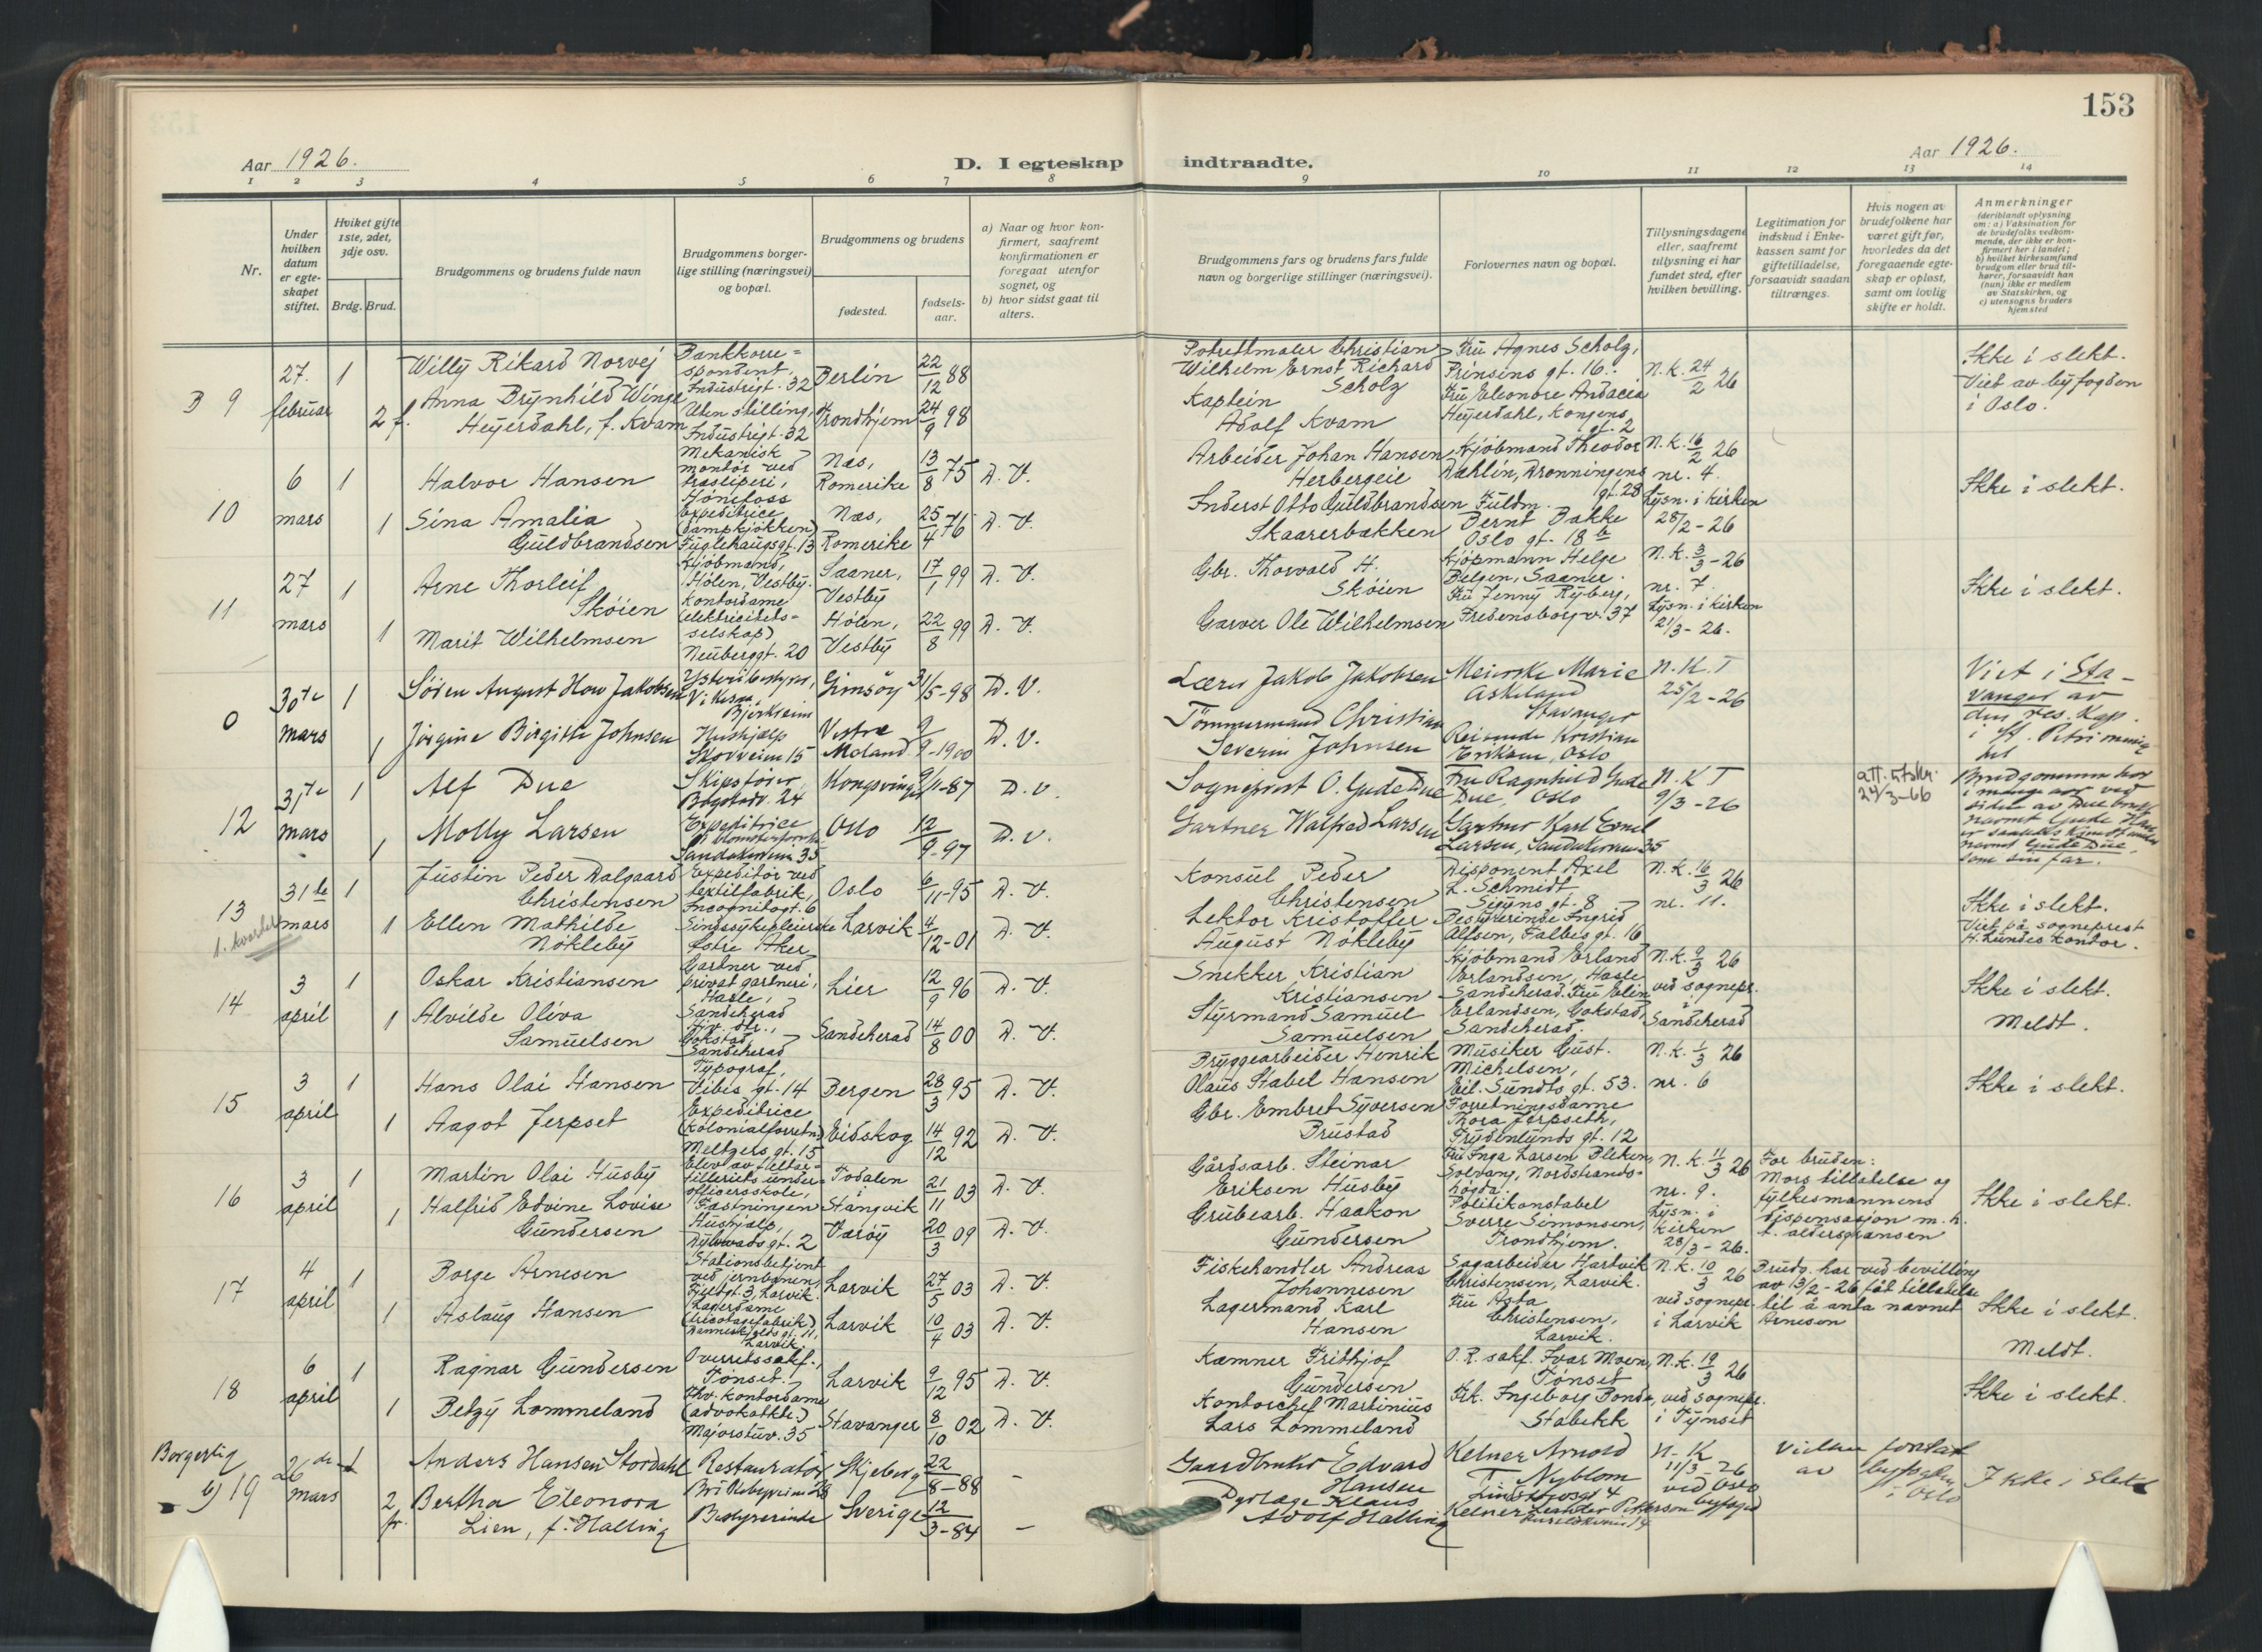 153
Aar 1926.
D. I egteskap
indtraadte.
Aar 1926.
1 2 3 4 5 6 7 8
9 10 11 12 13 14
Nr.
Under hvilken datum er egteskapet stiftet.
Hviket gifte 1ste, 2det, 3dje osv.
Brdg. Brud.
Brudgommens og brudens fulde navn
Brudgommens borgerlige stilling (næringsvei) og bopæl.
Brudgommens og brudens
fødested.
fødsels-aar.
a) Naar og hvor konfirmert, saafremt konfirmationen er foregaat utenfor sognet, og
b) hvor sidst gaat til alters.
Brudgommens fars og brudens fars fulde navn og borgerlige stillinger (næringsvei).
Forlovernes navn og bopæl.
Tillysningsdagene eller, saafremt tillysning ei har fundet sted, efter hvilken bevilling.
Legitimation for indskud i Enkekassen samt for giftetilladelse, forsaavidt saadan tiltrænges.
Hvis nogen av brudefolkene har været gift før, hvorledes da det foregaaende egteskap er opløst, samt om lovlig skifte er holdt.
Anmerkninger (deriblandt oplysning om: a) Vaksination for de brudefolks vedkommende, der ikke er konfirmert her i landet; b) hvilket kirkesamfund brudgom eller brud tilhører, forsaavidt han (hun) ikke er medlem av Statskirken, og c) utensogns bruders hjemsted
B 9
27. februar
1
Willy Rikard Norvej
Bankkorrespondent, Industrigt. 32
Berlin
22/12 88
2 f.
Anna Brynhild Winge Heyerdahl, f. Kvam
Uten stilling, Industrigt. 32
Trondhjem
24/9 98
Potrettmaler Christian Wilhelm Ernst Richard Scholz
Kaptein Adolf Kvam
Fru Agnes Scholz, Prinsens gt. 16.
Fru Eleonore Andacia Heyerdahl, Kongens gt. 2
N.k. 24/2 26
Ikke i slekt.
Viet av byfogden i Oslo.
10
6 mars
1
Halvor Hansen
Mekanisk montør ved træsliperi, Hønefoss
Næs, Romerike
13/8 75
D. V.
1
Sina Amalia Guldbrandsen
Expeditrice (dampkjøkken) Fuglehaugsgt. 13
Næs, Romerike
25/4 76
D. V.
Arbeider Johan Hansen Herbergeie
Inderst Otto Guldbrandsen Skaarerbakken
Kjøbmand Theodor Dæhlin, Dronningens gt. 28
Fuldm. Bernt Bakke Oslo gt. 18 b
N.k. 16/2 26
nr. 4.
Lysn. i kirken 28/2 - 26
Ikke i slekt.
11
27 mars
1
Arne Thorleif Skøien
Kjøbmand, Hølen, Vestby.
Saaner, Vestby
17/1 99
D. V.
1
Marit Wilhelmsen
Kontordame (elektricitetsselskap) Neuberggt. 20
Hølen, Vestby
22/8 99
D. V.
Gbr. Thorvald H. Skøien
Garver Ole Wilhelmsen
Kjøpmann Helge Belgen, Saaner.
Fru Jenny Ryberg, Fredensborgv. 37
N.k. 3/3 - 26
nr. 7.
Lysn. i kirken 21/3 - 26.
Ikke i slekt.
0
30te mars
1
Søren August How Jakobsen
Ysteribestyrer, Vikeså, Bjerkreim
Gimsøy
31/5 - 98
D. V.
1
Jørgine Birgitte Johnsen
Hushjælp Skovveien 15
Vestre Moland
9/9 - 1900
D. V.
Lærer Jakob Jakobsen
Tømmermand Christian Severin Johnsen
Meierske Marie Askeland Stavanger
Reisende Kristian Eriksen, Oslo
N.K.T 25/2 - 26
Viet i Stavanger av den res. kap. i St. Petri menighet
12
31te mars
1
Alf Due
Skipsfører, Bogstadv. 24
Kongsvinger
9/11 - 87
D. V.
1
Molly Larsen
Expeditrice i blomsterforretn. Sandakerveien 35
Oslo
12/9 - 97
D. V.
Sogneprest O. Gude Due
Gartner Walfred Larsen
Fru Ragnhild Gude Due, Oslo
Gartner Karl Emil Larsen, Sandakerveien 35
N.K T 9/3 - 26
att. utskr. 24/3-66
Brudgommen har i mange aar ved siden av Due brukt navnet Gude. Han er saaledes kjendt under navnet Gude Due, som sin far.
13
1. kvartal
31te mars
1
Justin Peder Dalgaard Christensen
Expeditør ved textilfabrik, Incognitogt. 6
Oslo
6/11 - 95
D. V.
1
Ellen Mathilde Nøkleby
Sindssykepleierske Østre Aker
Larvik
4/12 - 01
D. V.
Konsul Peder Christensen
Lektor Kristoffer August Nøkleby
Disponent Axel L. Schmidt Sigyns gt. 8
Bestyrerinde Ingrid Alfsen, Falbes gt. 16
N.k. 16/3 26
nr. 11.
Ikke i slekt.
Viet på sogneprest H. Lundes kontor.
14
3 april
1
Oskar Kristiansen
Gartner ved privat gartneri, Hasle, Sandeherad
Lier
12/9 96
D. V.
1
Alvilde Oliva Samuelsen
Hjv. dtr., Gokstad, Sandeherad
Sandeherad
14/8 00
D. V.
Snekker Kristian Kristiansen
Styrmand Samuel Samuelsen
Kjøbmand Erland Erlandsen, Hasle Sandeherad. Fru Elin Erlandsen, Gokstad, Sandeherad.
N.k. 9/3 26
ved sognepr. i Sandeherad
Ikke i slekt.
Meldt.
15
3 april
1
Hans Olai Hansen
Typograf, Vibes gt. 14
Bergen
28/3 95
D. V.
1
Aagot Jerpset
Expeditrice (kolonialforretn.) Meltzers gt. 15
Eidskog
14/12 92
D. V.
Bryggearbeider Henrik Olaus Stabel Hansen
Gbr. Embret Syversen Brustad
Musiker Gust. Michelsen, Eil. Sundts gt. 53.
Forretningsdame Thora Jerpseth, Frydenlunds gt. 12
N.k. 1/3 26
nr. 6
Ikke i slekt.
16
3 april
1
Martin Olai Husby
Elev av feltartilleriets underoffisersskole, Fæstningen
Todalen i Stangvik
21/11 03
D. V.
1
Halfrid Edvine Lovise Gundersen
Hushjælp, gt. 2
Værøy
20/3 09
D. V.
Gårdsarb. Steinar Eriksen Husby
Grubearb. Haakon Gundersen
Fru Inga Larsen Bleken, Solvang, Nordstrandshøgda.
Politikonstabel Sverre Simonsen, Trondhjem.
N.k. 11/3 26
nr. 9.
Lysn. i kirken 28/3 - 26.
For bruden: Mors tillatelse og fylkesmannens dispensasjon m. h. t. aldersgrænsen
Ikke i slekt.
17
4 april
1
Borge Arnesen
Stationsbetjent ved jernbanen, Larvik.
Larvik
27/5 03
D. V.
1
Aslaug Hansen
Lagerdame (tricotagefabrik) Danneskjolds gt. 11, Larvik
Larvik
10/4 03
D. V.
Fiskehandler Andreas Johannesen
Lagermand Karl Hansen
Sagarbeider Hartvik Christensen, Larvik.
Fru Asta Christensen, Larvik.
N.k. 10/3 26
ved sognepr. i Larvik
Brudg. har ved bevilling av 13/2 - 26 fåt tillatelse til å anta navnet Arnesen
Ikke i slekt.
Meldt.
18
6 april
1
Ragnar Gundersen
Overretssakf., Tønset.
Larvik
9/12 95
D. V.
1
Betzy Lommeland
Fhv. kontordame (advokatktr.) Majorstuv. 35
Stavanger
8/10 02
D. V.
Kæmner Fridthjof Gundersen
Kontorchef Martinius Lars Lommeland
O. R. sakf. Ivar Moen, Tønset
Frk. Ingeborg Bonde, Stabekk
N.k. 19/3 26
ved sognepr. i Tynset
Ikke i slekt.
Borgerlig
b) 19
26de mars
1
Anders Hansen Stordahl
Restauratør
Skjeberg
22/8 - 88
-
2 fr.
Bertha Eleonora Lien, f. Halling
Bestyrerinde
Sverige
12/3 - 84
-
Gaardbruker Edvard Hansen
Dyrlæge Klaus Adolf Halling
Kelner Arnold T. Nyblom
Kelner Leander Petterson
N-K 11/3 26
ved Oslo byfoged
Vielsen foretat av byfogden i Oslo
Ikke i slekt